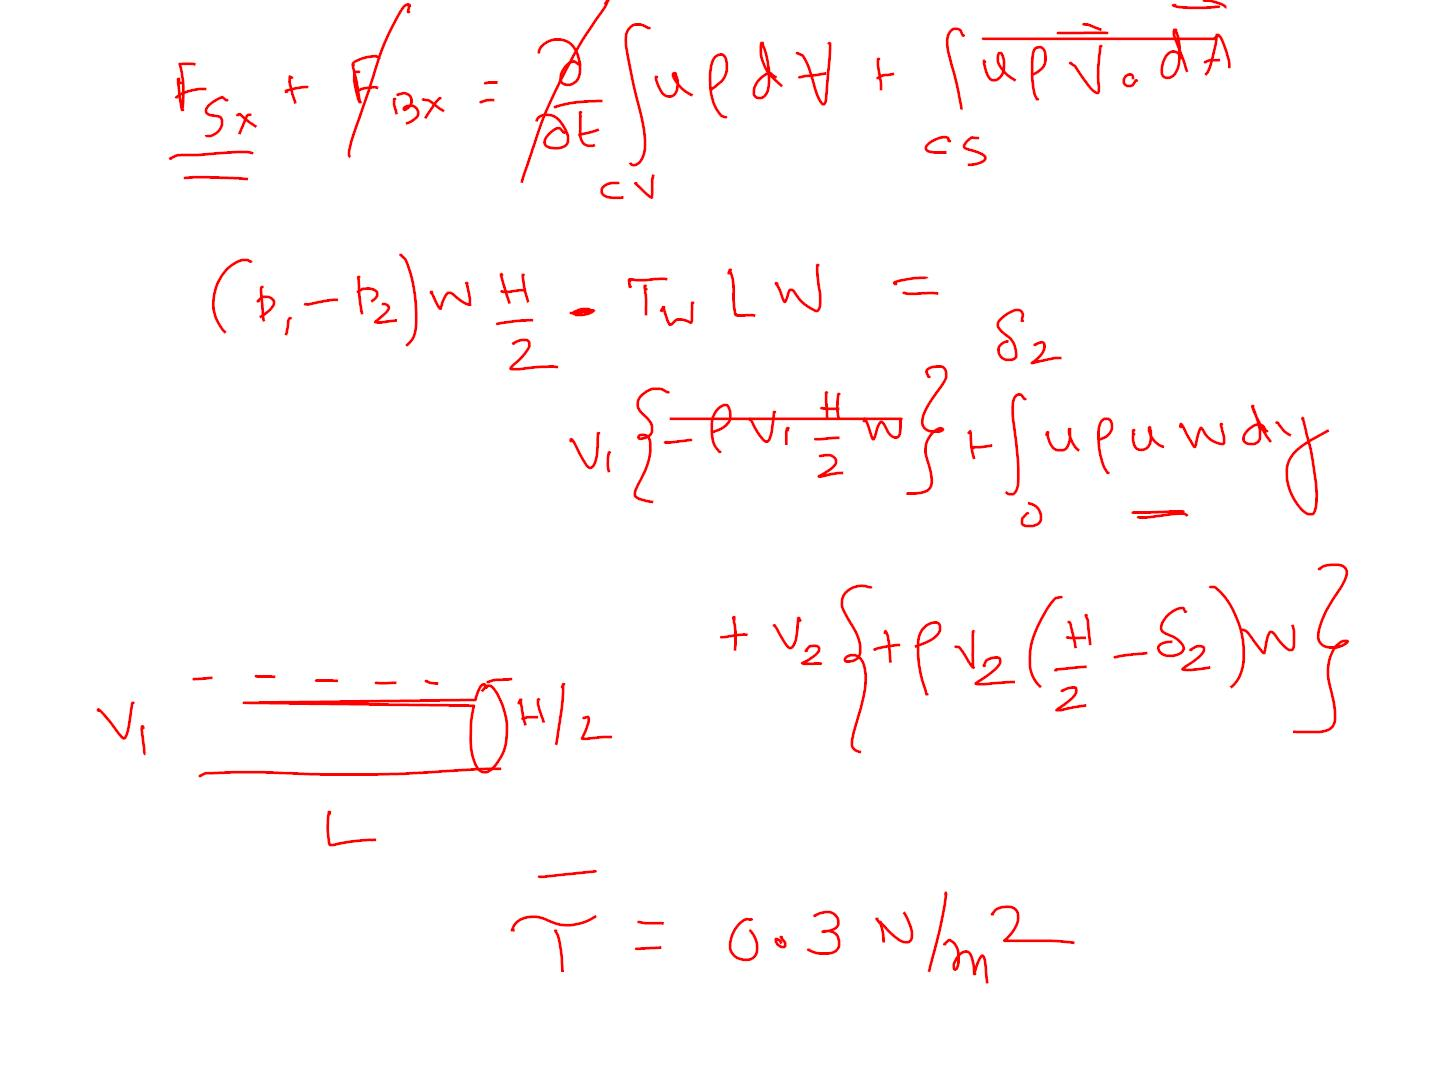 F_Sx + F_Bx = ∂/∂t ∫_CV u ρ dV + ∫_CS u ρ V⃗ . dA⃗
(p₁ - p₂) W H/2 - τ_w L W =
V₁ {-ρ V₁ H/2 W} + ∫₀^δ₂ u ρ u w dy
+ V₂ {+ρ V₂ (H/2 - δ₂) W}
V₁ H/2
L
τ̄ = 0.3 N/m²